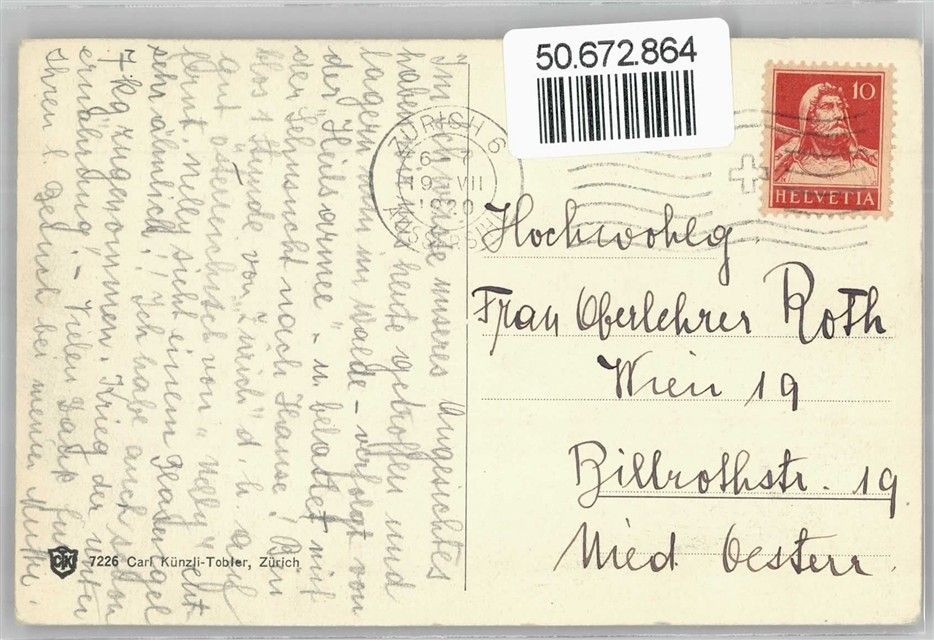 50.672.864
10
HELVETIA
ZÜRICH 6
19. VII
1920
Hochwohlg.
Frau Oberlehrer Roth
Wien 19
Billrothstr. 19.
Nied Oesterr.
Im Schweisse unseres Angesichtes
haben wir uns heute getroffen und
lagern nun im Walde - verfolgt von
der "Heilsarmee" - u. belastet mit
der Sehnsucht nach Hause! Bin
blos 1 Stunde von "Zürich" d. h. auf
gut österreichisch von "Nelly" ent
fernt. Nelly sieht einem
sehr ähnlich!! Ich habe auch schon
7 kg zugenommen. Krieg der Unter
ernährung! - Vielen Dank für
Ihren l. Besuch bei meiner Mutti.
CKT 7226 Carl Künzli-Tobler, Zürich